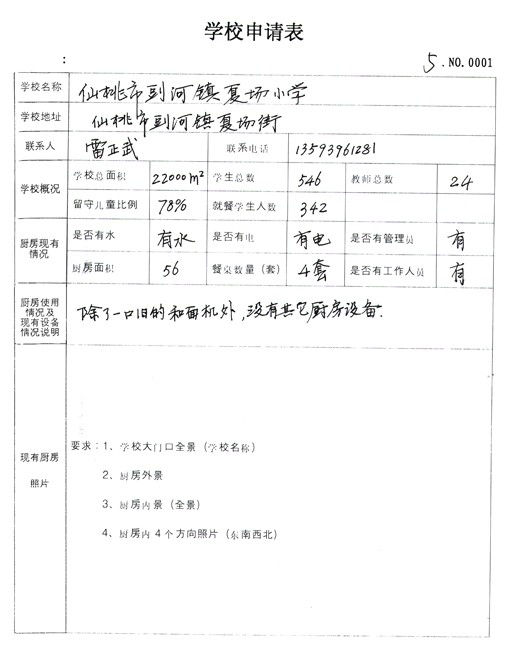 学校申请表
：
5.NO.0001
学校名称 仙桃市剅河镇夏场小学
学校地址 仙桃市剅河镇夏场街
联系人 雷正武 联系电话 13593961281
学校概况 学校总面积 22000m² 学生总数 546 教师总数 24
留守儿童比例 78% 就餐学生人数 342
厨房现有情况 是否有水 有水 是否有电 有电 是否有管理员 有
厨房面积 56 餐桌数量（套） 4套 是否有工作人员 有
厨房使用情况及现有设备情况说明 除了一口旧的和面机外，没有其它厨房设备.
现有厨房照片
要求：1、学校大门口全景（学校名称）
2、厨房外景
3、厨房内景（全景）
4、厨房内4个方向照片（东南西北）